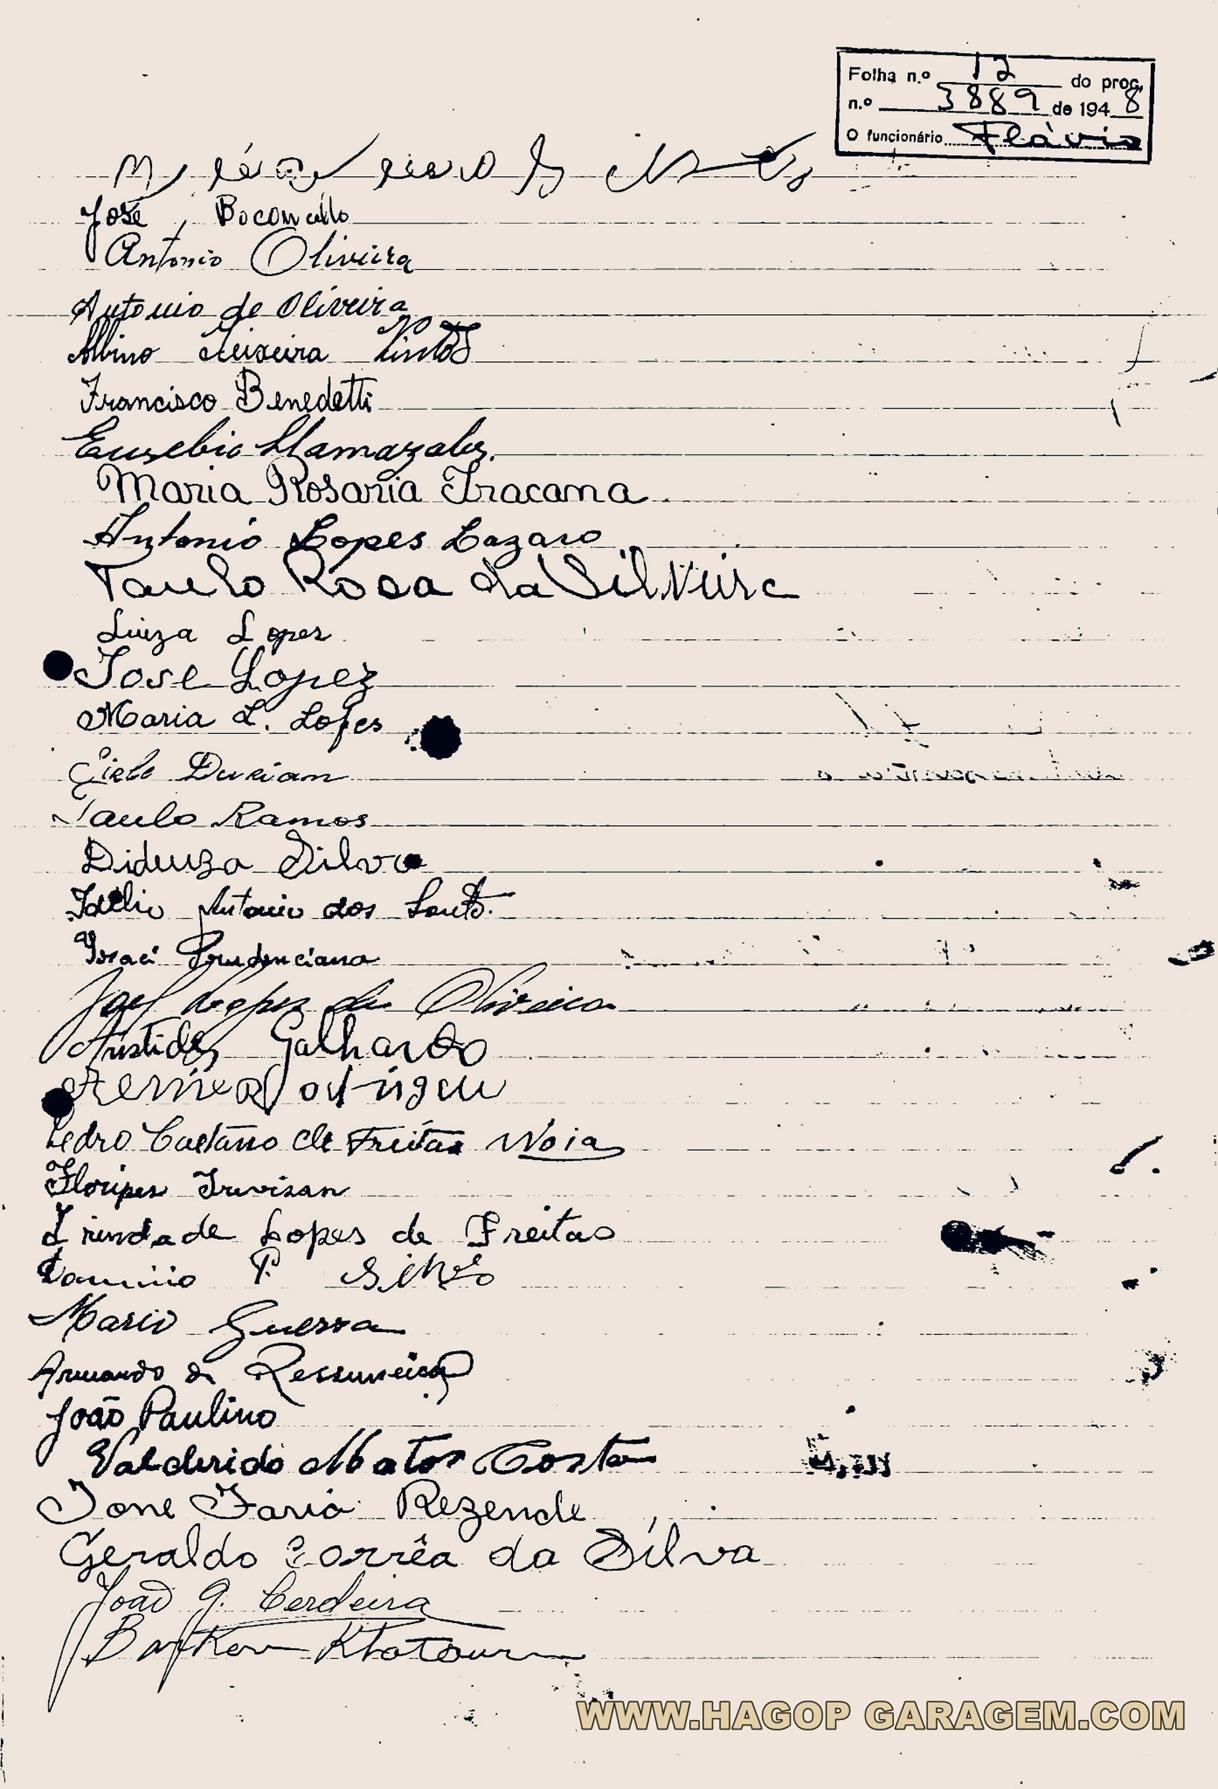 Folha n.º 12 do proc.
n.º 3889 de 1948
O funcionário Flávio
José
Antonio Oliveira
Antonio de Oliveira
Albino Teixeira Pinto
Francisco Benedetti
Eusebio Llamazales.
Maria Rosaria Iracama
Antonio Lopes Lazaro
Paulo Rosa da Silveira
Luiza Lopes
Jose Lopez
Maria L. Lopes
Durian
Paulo Ramos
Silva
Antonio dos Santos
Iraci Prudenciana
Lopez de Oliveira
Aristides Galhardo
Pedro Caetano de Freitas Noia
Floripes Trevisan
Trindade Lopes de Freitas
P. Silva
Mario Guerra
Armando
João Paulino
Valderido Matos Costa
Jone Faria Rezende
Geraldo Corrêa da Silva
João G. Cerdeira
WWW.HAGOP GARAGEM.COM